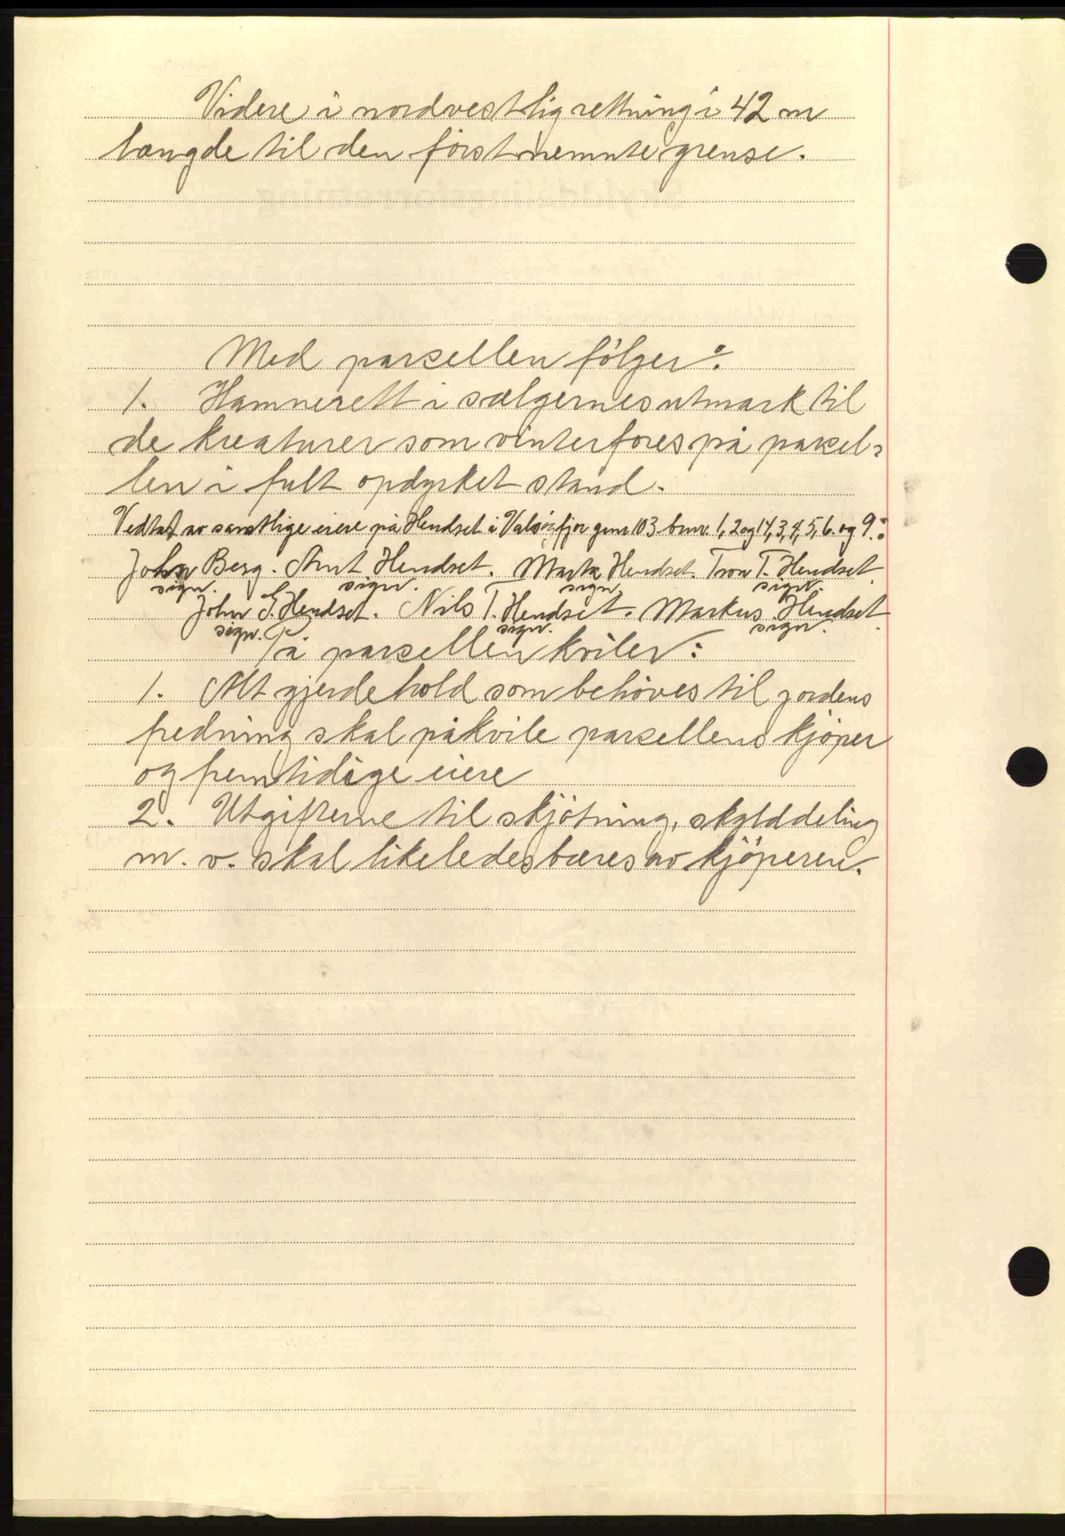 Videre i nordvestlig rettning i 42 m
længde til den förstnemnte grense.
Med parsellen fölger:
1. Hamnerett i sælgernes utmark til
de kreaturer som vinterfores på parsel-
len i fult opdyrket stand.
Vedtat av samtlige eiere på Hendset i Valsöifjor gnr 103 bnr. 1, 2 og 14, 3, 4, 5, 6. og 9.:
John Berg. Arnt Hendset. Marta Hendset. Tron T. Hendset.
sign. sign. sign. sign.
John G. Hendset. Nils T. Hendset. Markus Hendset.
sign. sign. sign.
På parsellen kviler:
1. Alt gjerdehold som behöves til jordens
fredning skal påkvile parsellens kjöper
og fremtidige eiere
2. Utgifterne til skjötning, skylddeling
m. v. skal likeledes bæres av kjöperen.